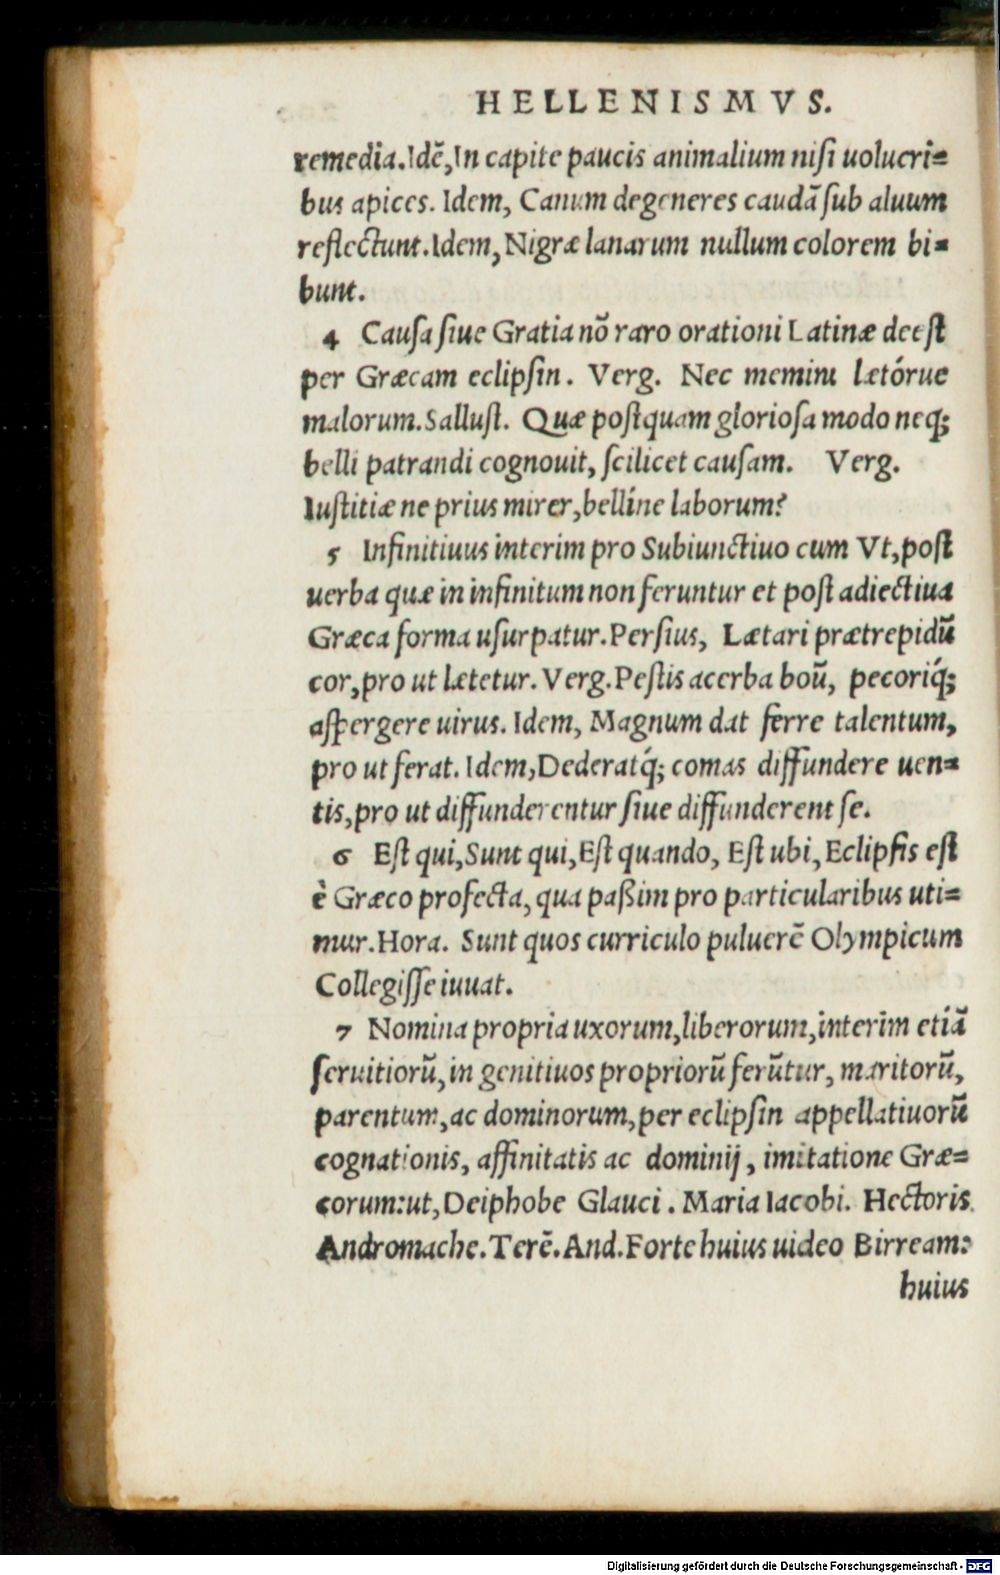 HELLENISMVS.
remedia. Idē, In capite paucis animalium nisi uolucri=
bus apices. Idem, Canum degeneres caudā sub aluum
reflectunt. Idem, Nigræ lanarum nullum colorem bi=
bunt.
4 Causa siue Gratia nō raro orationi Latinæ deest
per Græcam eclipsin. Verg. Nec memini lætórue
malorum. Sallust. Quæ postquam gloriosa modo neq;
belli patrandi cognouit, scilicet causam. Verg.
Iustitiæ ne prius mirer, belline laborum?
5 Infinitiuus interim pro Subiunctiuo cum Vt, post
uerba quæ in infinitum non feruntur et post adiectiua
Græca forma usurpatur. Persius, Lætari prætrepidū
cor, pro ut lætetur. Verg. Pestis acerba boū, pecoriq́;
aspergere uirus. Idem, Magnum dat ferre talentum,
pro ut ferat. Idem, Dederatq́; comas diffundere uen=
tis, pro ut diffunderentur siue diffunderent se.
6 Est qui, Sunt qui, Est quando, Est ubi, Eclipsis est
è Græco profecta, qua paßim pro particularibus uti=
mur. Hora. Sunt quos curriculo puluerē Olympicum
Collegisse iuuat.
7 Nomina propria uxorum, liberorum, interim etiā
seruitiorū, in genitiuos propriorū ferūtur, maritorū,
parentum, ac dominorum, per eclipsin appellatiuorū
cognationis, affinitatis ac dominij, imitatione Græ=
corum: ut, Deiphobe Glauci. Maria Iacobi. Hectoris
Andromache. Terē. And. Forte huius uideo Birream:
huius
Digitalisierung gefördert durch die Deutsche Forschungsgemeinschaft - DFG